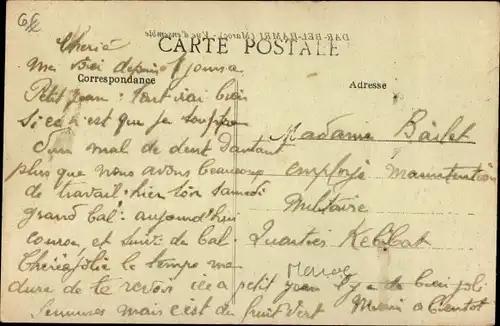 DAR-BEL-HAMRI (Maroc) - Vue d'ensemble
CARTE POSTALE
Correspondance
Adresse
Cherie
me voici depuis 8 jours a
Petit Jean : tout vai bien
Si ce n'est que je souffre
d'un mal de dent d'autant
plus que nous avons beaucoup
de travail : hier soir samedi
grand bal : aujourd'hui
course et suivi de bal
Cherie jolie le temps me
dure de te revoir ici a petit Jean il y a de bien joli
femmes mais c'est du fruit vert Merci a Bientot
Madame Barlet
employé Manutention
Militaire
Quartier Kebibat
Maroc